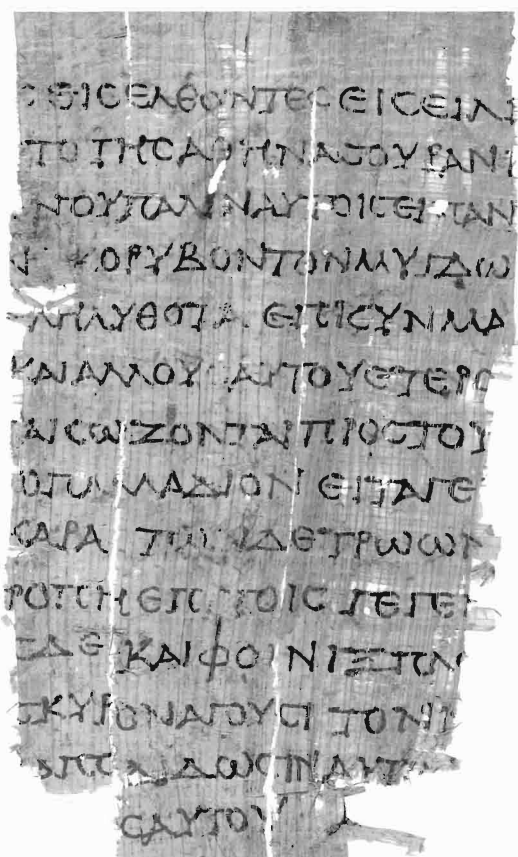 Σ ΕΙΣΕΛΘΟΝΤΕΣ ΕΙΣ ΕΙΛΙ
ΤΟ ΤΗΣ ΑΘΗΝΑΣ ΟΥΡΑΝΙ
ΝΟΥ ΠΑΛΙΝ ΑΥΤΟΙΣ
ΚΟΡΥΒΟΝ ΤΟΝ ΜΥΓΔΩ
ΛΗΛΥΘΟΤΑ ΕΠΙ ΣΥΝΜΑ
ΚΑΙ ΑΛΛΟΥΣ ΑΥΤΟΥ ΕΤΕΡΟ
ΑΙ ΣΩΖΟΝΤΑΙ ΠΡΟΣ ΤΟΥ
ΤΟ ΠΑΛΛΑΔΙΟΝ ΕΙΤΑ ΓΕ
ΣΑΡΑ ΤΩΝ ΔΕ ΤΡΩΩΝ
ΡΟΠΗ ΕΠΙ ΤΟΙΣ ΓΕΓΕ
ΔΕ ΚΑΙ ΦΟΙΝΙΞ ΠΑ
ΣΚΥΡΟΝ ΑΓΟΥΣΙ ΤΟΝ
ΔΙΔΩΣΙΝ ΑΥΤ
Σ ΑΥΤΟΥ